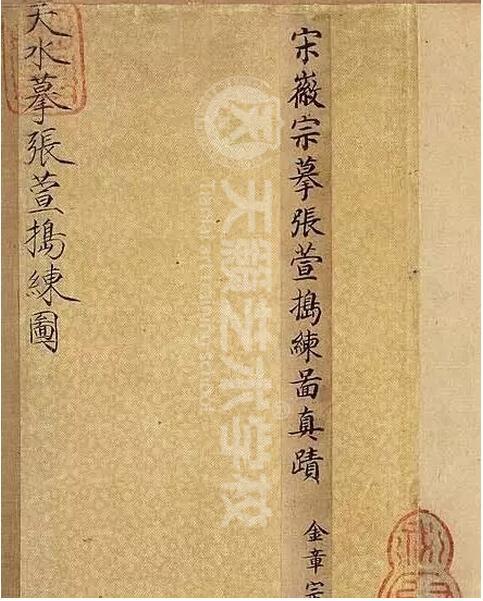 宋徽宗摹張萱搗練啚真蹟
金章宗
天水摹張萱搗練圖
天籁艺术学校
Tianlai art training school